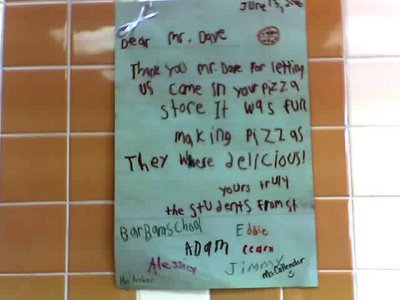 June 13,
Dear Mr. Dave
Thank you Mr. Dave For letting
us come in your Pizza
store It was fun
making Pizzas
They where delicious!
yours truly
the students From St.
BarBara School
Eddie
ADAM
Alessia
Jimmy
Ms Callendar